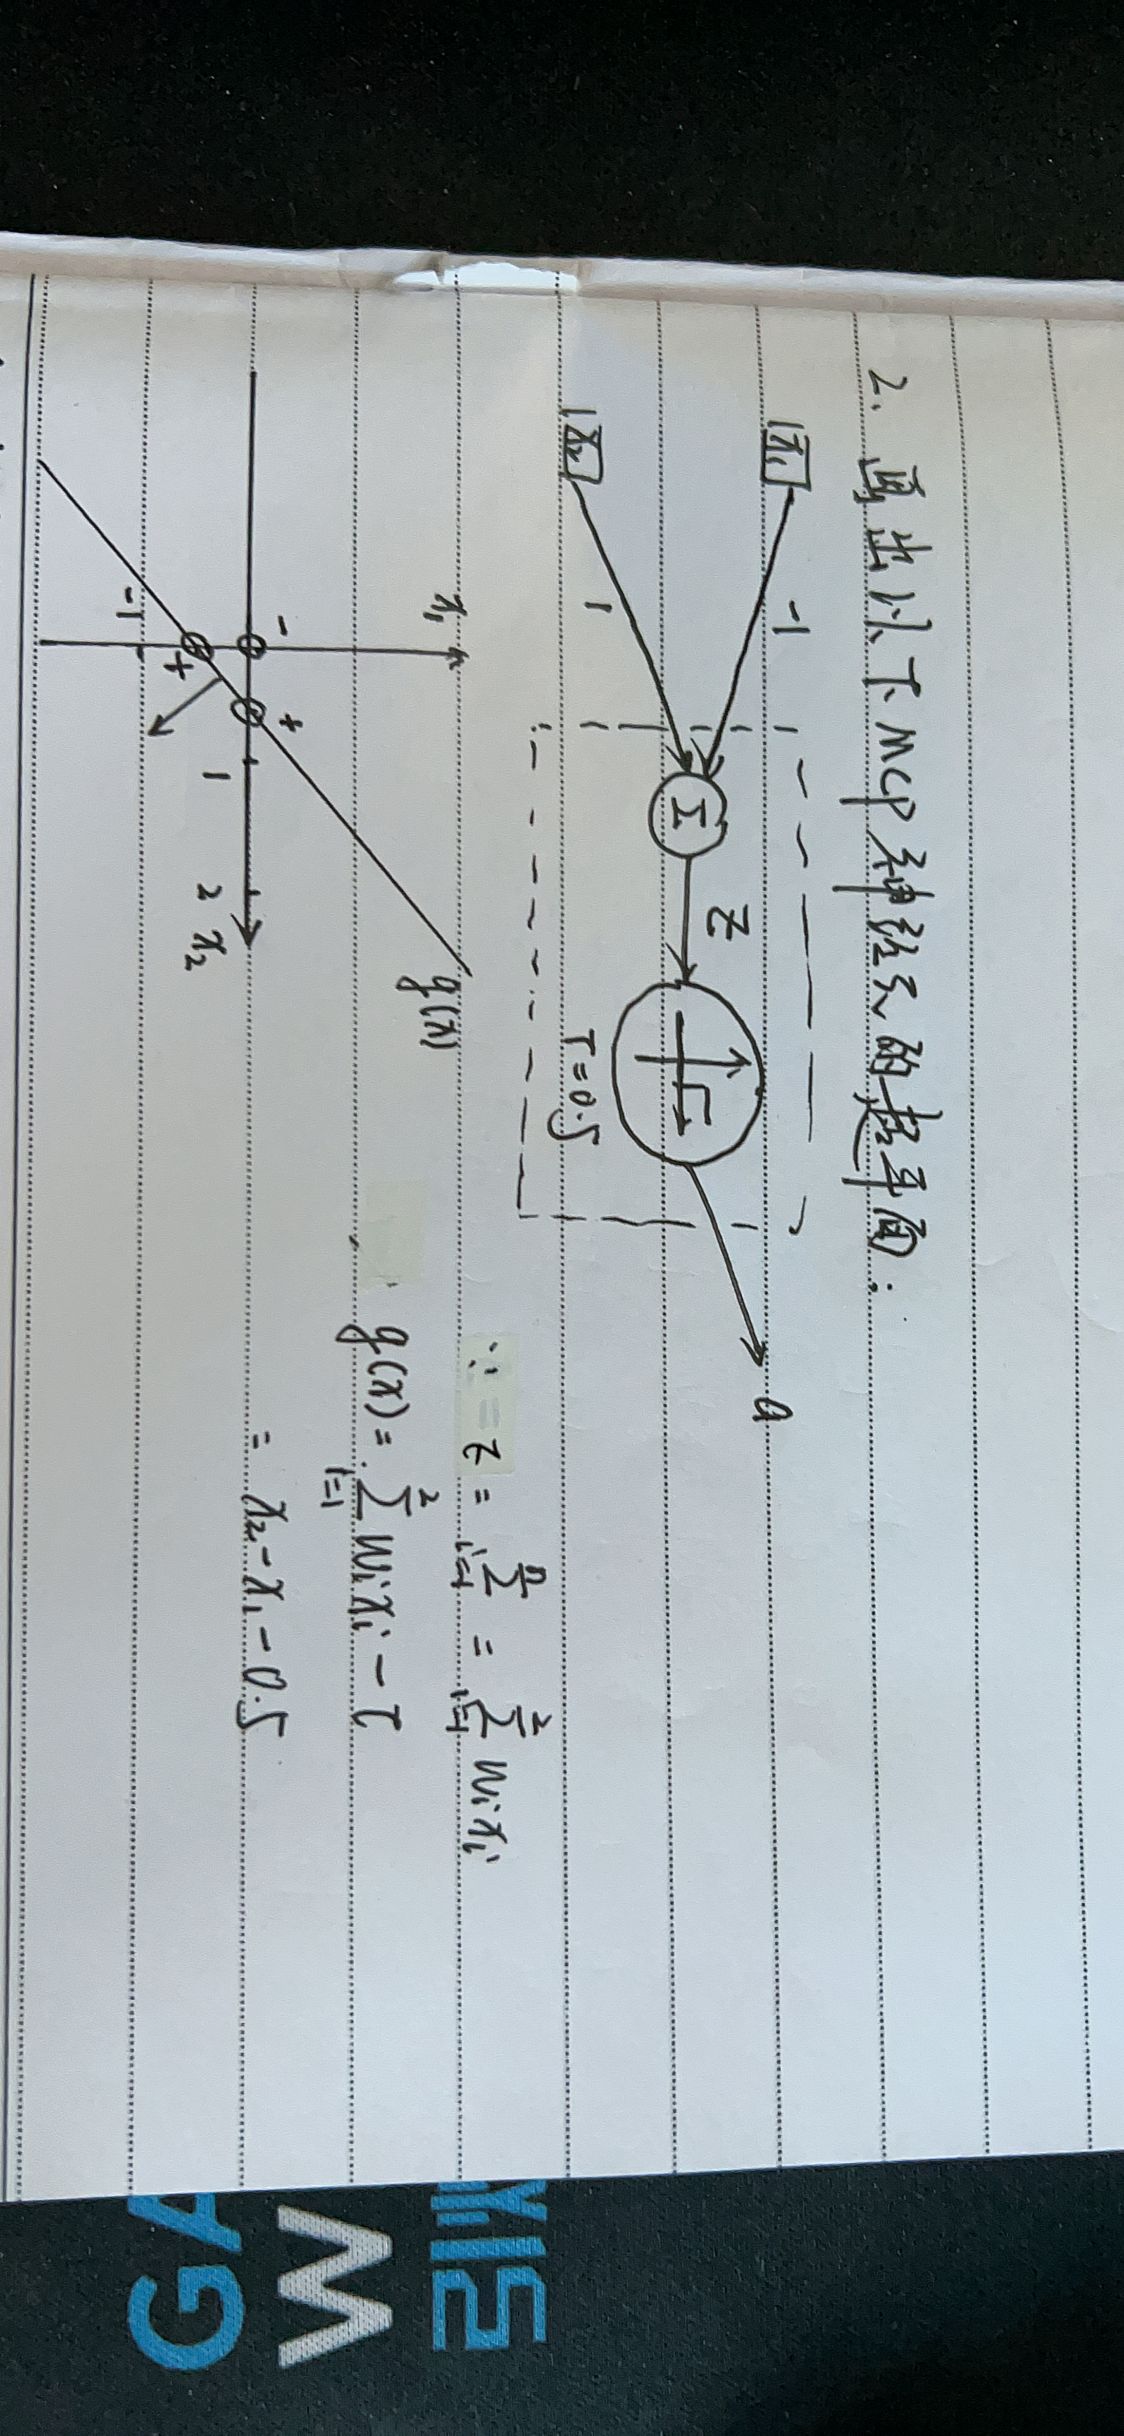 2. 画出以下MCP神经元的超平面:
x₁
-1
x₂
1
Σ
Z
T=0.5
a
x₁
-
+
+
-1
1
2
x₂
g(x)
∵ z = Σⁿᵢ₌₁ = Σ²ᵢ₌₁ wᵢxᵢ
g(x) = Σ²ᵢ₌₁ wᵢxᵢ - T
= x₂ - x₁ - 0.5
GA
W